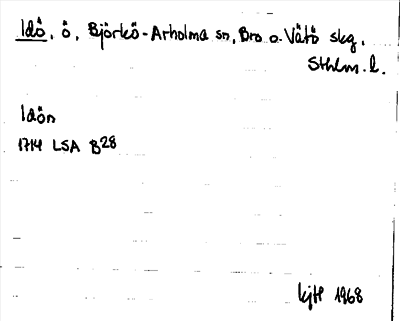 Idö, ö, Björkö-Arholma sn, Bro o. Vätö skg,
Sthlm. l.
Idön
1714 LSA B28
kjtl 1968